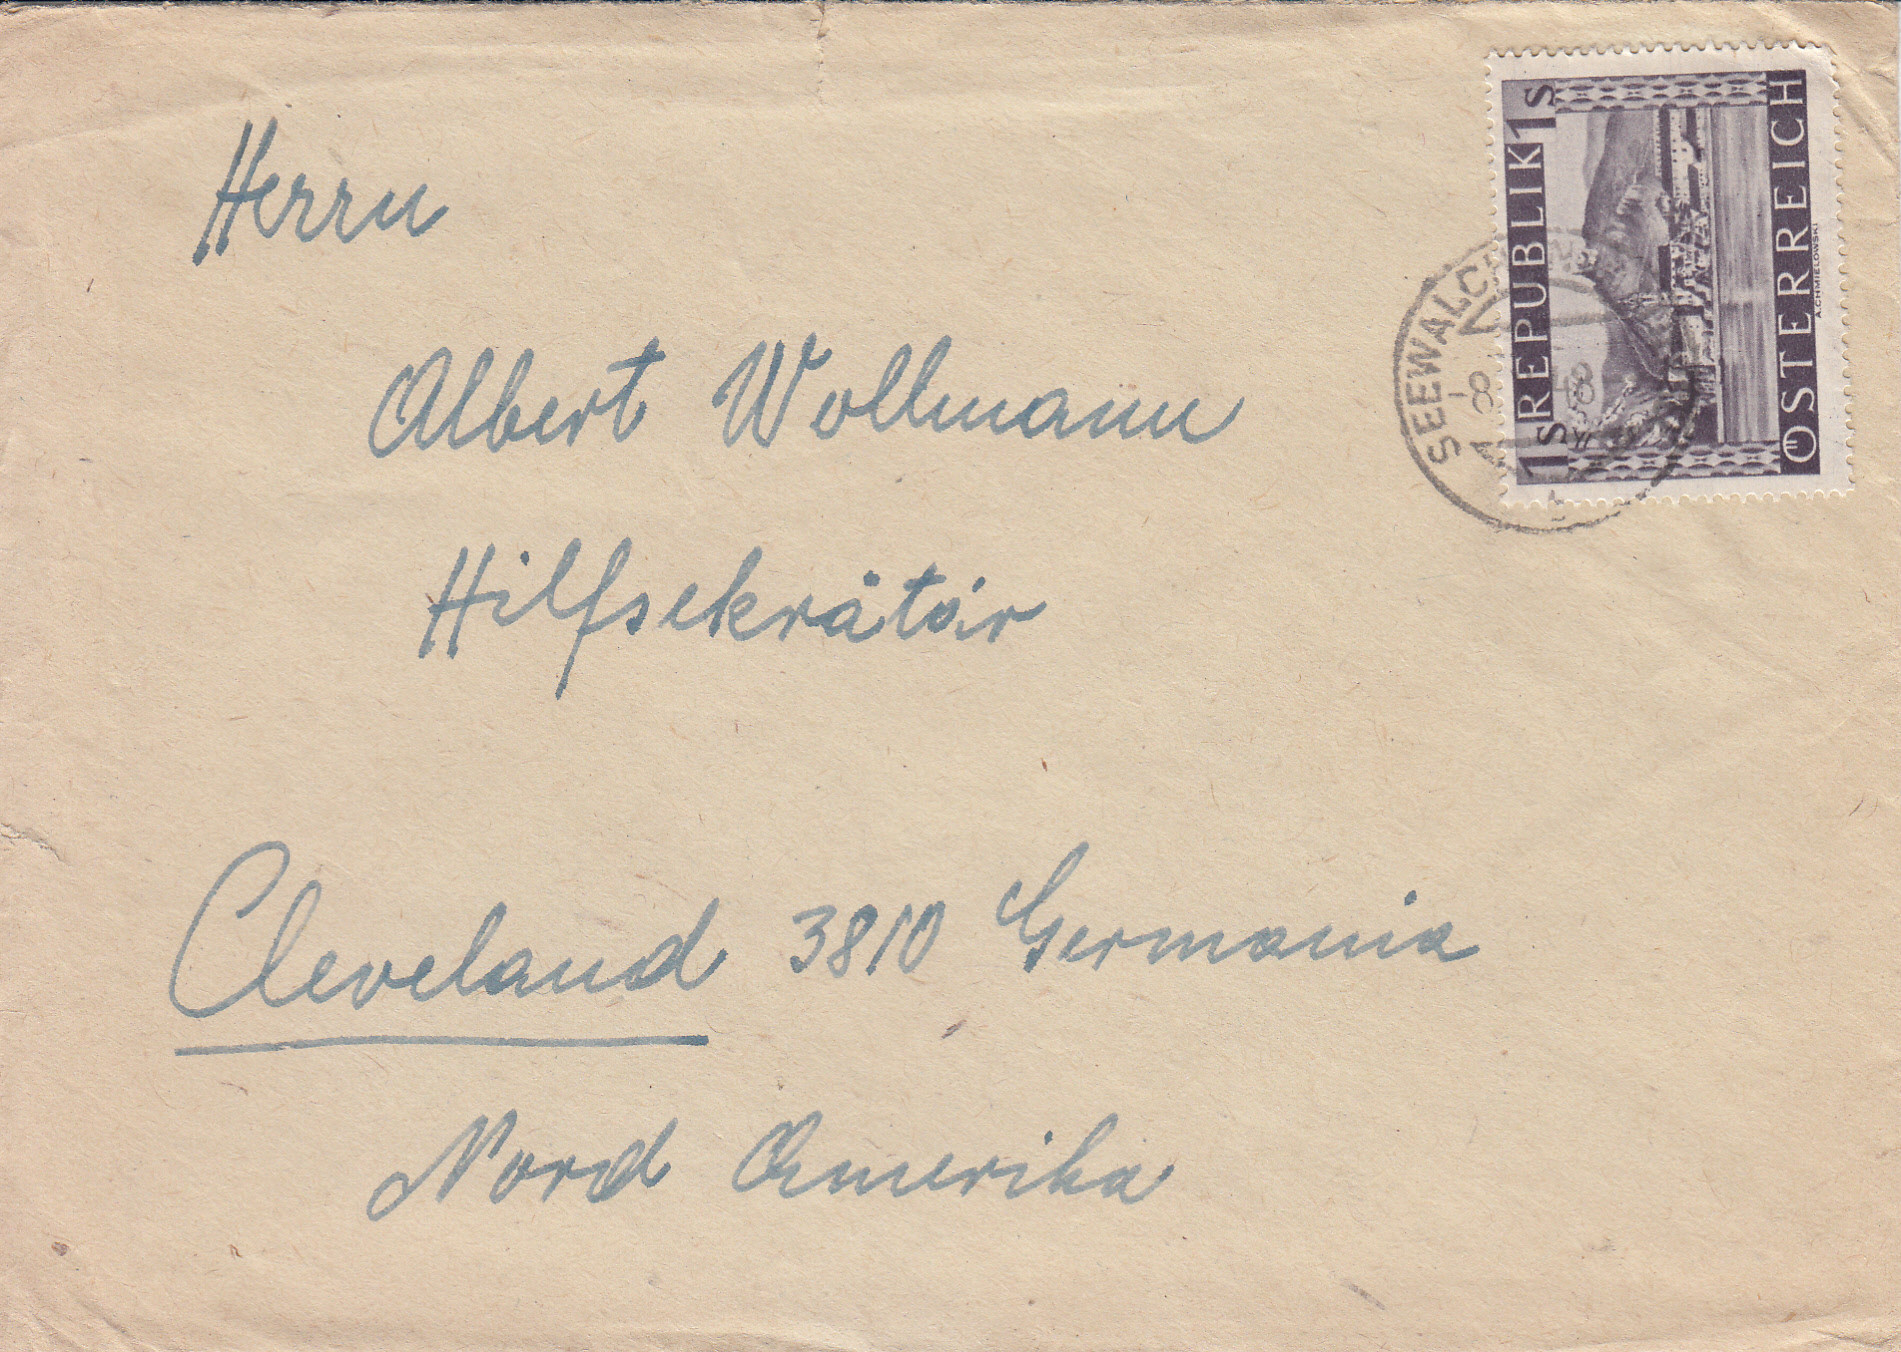 Herrn
Albert Wollmann
Hilfsekrätär
Cleveland 3810 Germania
Nord Amerika
1s REPUBLIK 1s
ÖSTERREICH
A.CHMIELOWSKI
-8. 48